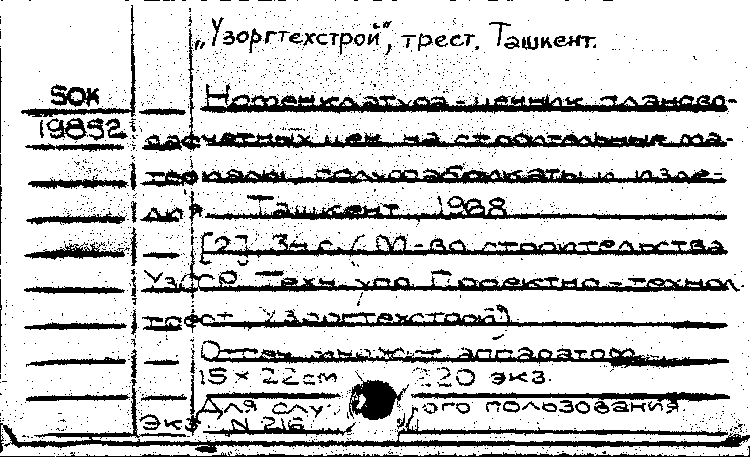 „Узоргтехстрой", трест. Ташкент.
50К Номенклатура-ценник планово-
19852 расчетных цен на строительные ма-
териалы, полуфабрикаты и изде-
лия. Ташкент 1968
[2], 34 с. (М-во строительства
УзССР. Техн. упр. Проектно-технол.
трест Узоргтехстрой)
Отпеч. множит. аппаратом
15 x 22см 220 экз.
Для слу ого полозования
Экз. N 216